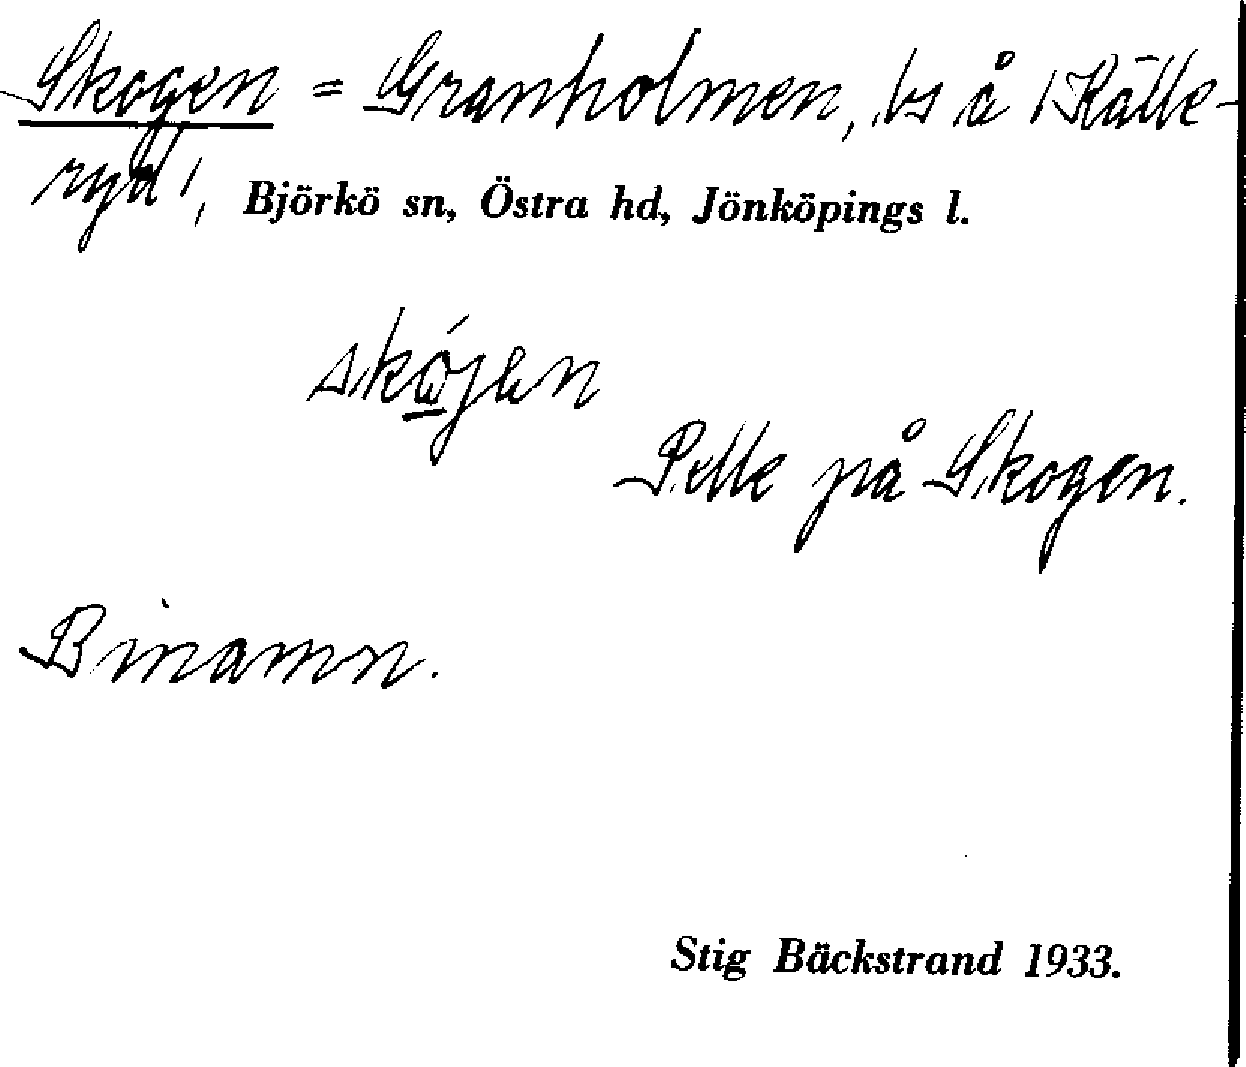 Skogen = Granholmen, bs å 'Källe-
ryd', Björkö sn, Östra hd, Jönköpings l.
skójen
Pelle på Skogen.
Binamn.
Stig Bäckstrand 1933.